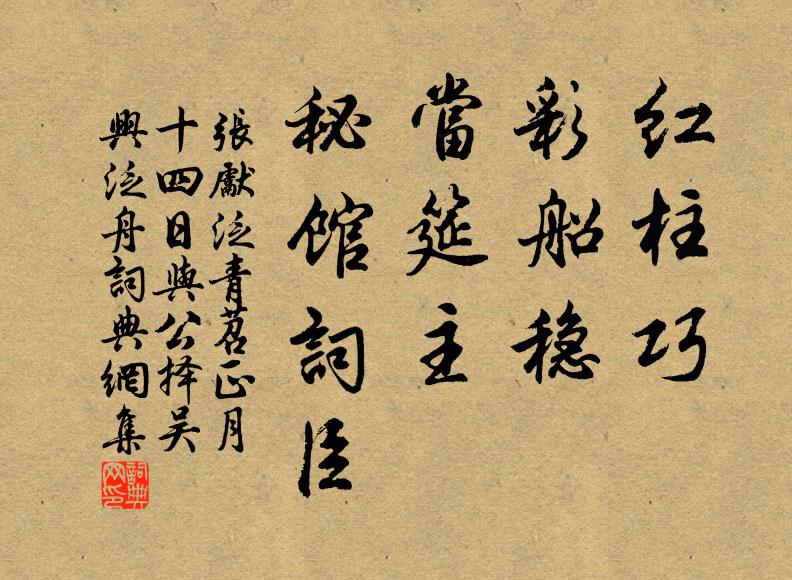 红柱巧
彩船稳
當筵主
秘馆詞臣
張獻泛青苕正月
十四日與公择吴
興泛舟詞典網集
詞典网印